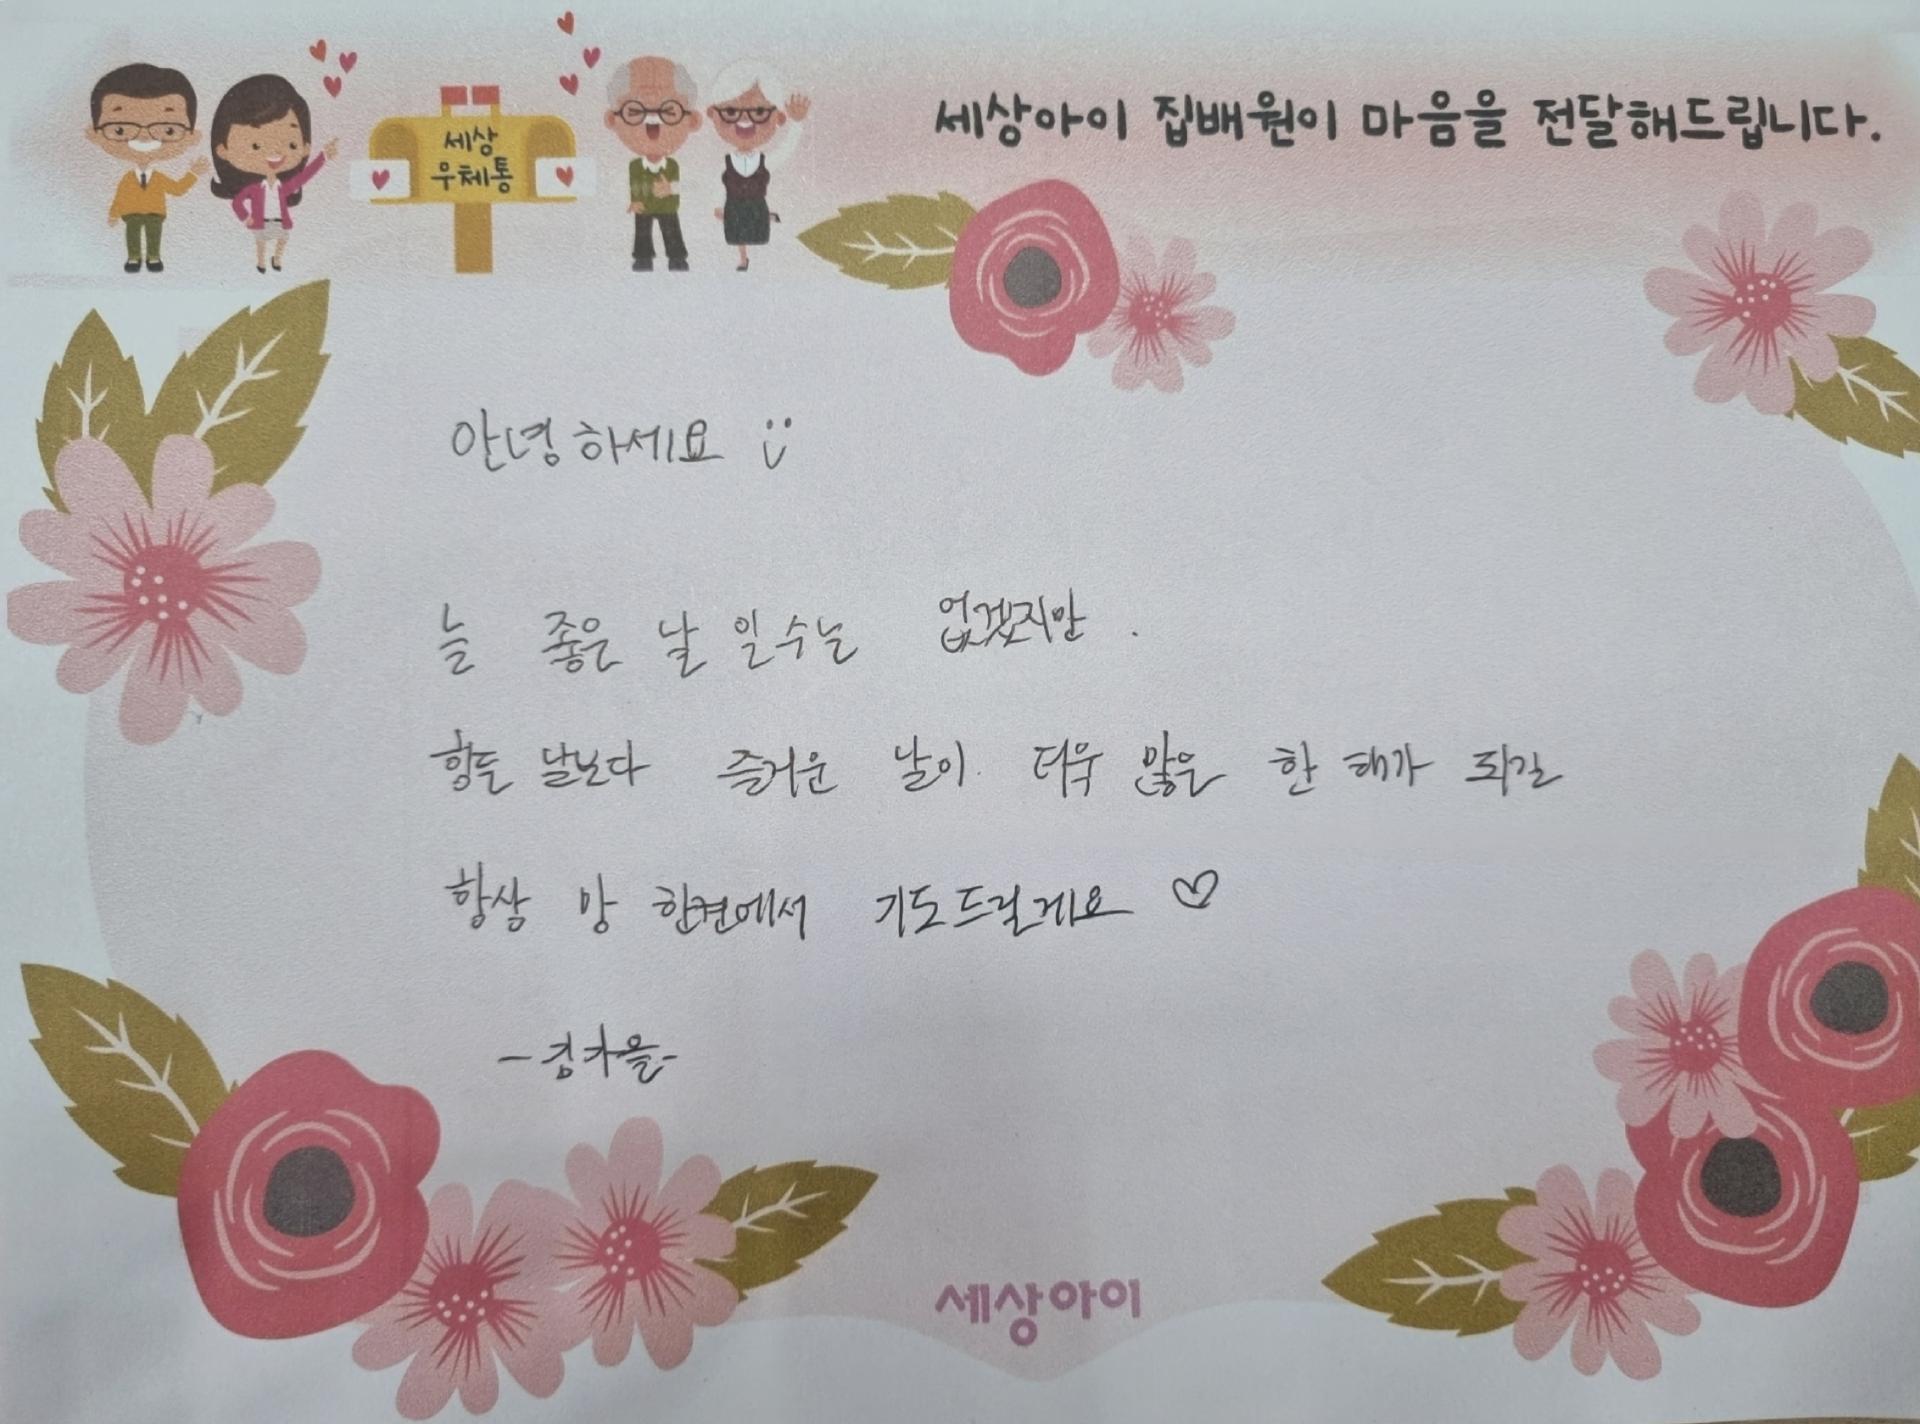 세상아이 집배원이 마음을 전달해드립니다.
세상
우체통
안녕하세요 :)
늘 좋은 날 일수는 없겠지만.
힘든 날보다 즐거운 날이 더욱 많은 한 해가 되길
항상 맘 한켠에서 기도드릴게요 ♡
-김가을-
세상아이